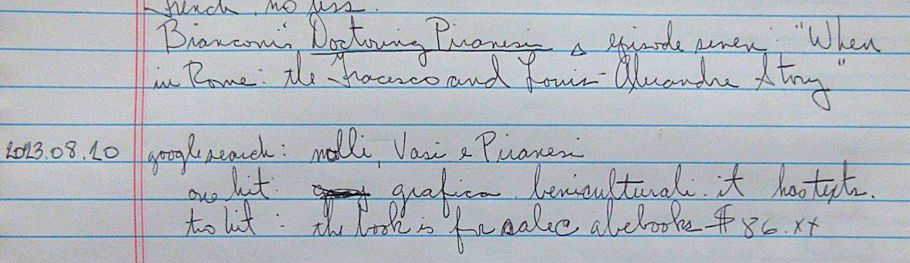 french, no less.
Bianconi's Doctoring Piranesi △ episode seven: "When
in Rome: the Fracesco and Louis-Alexandre Story"
2013.08.10 google search: nolli, Vasi e Piranesi
one hit: grafica.beniculturali.it has texts.
two hit: the book is for sale @ abebooks $86.xx